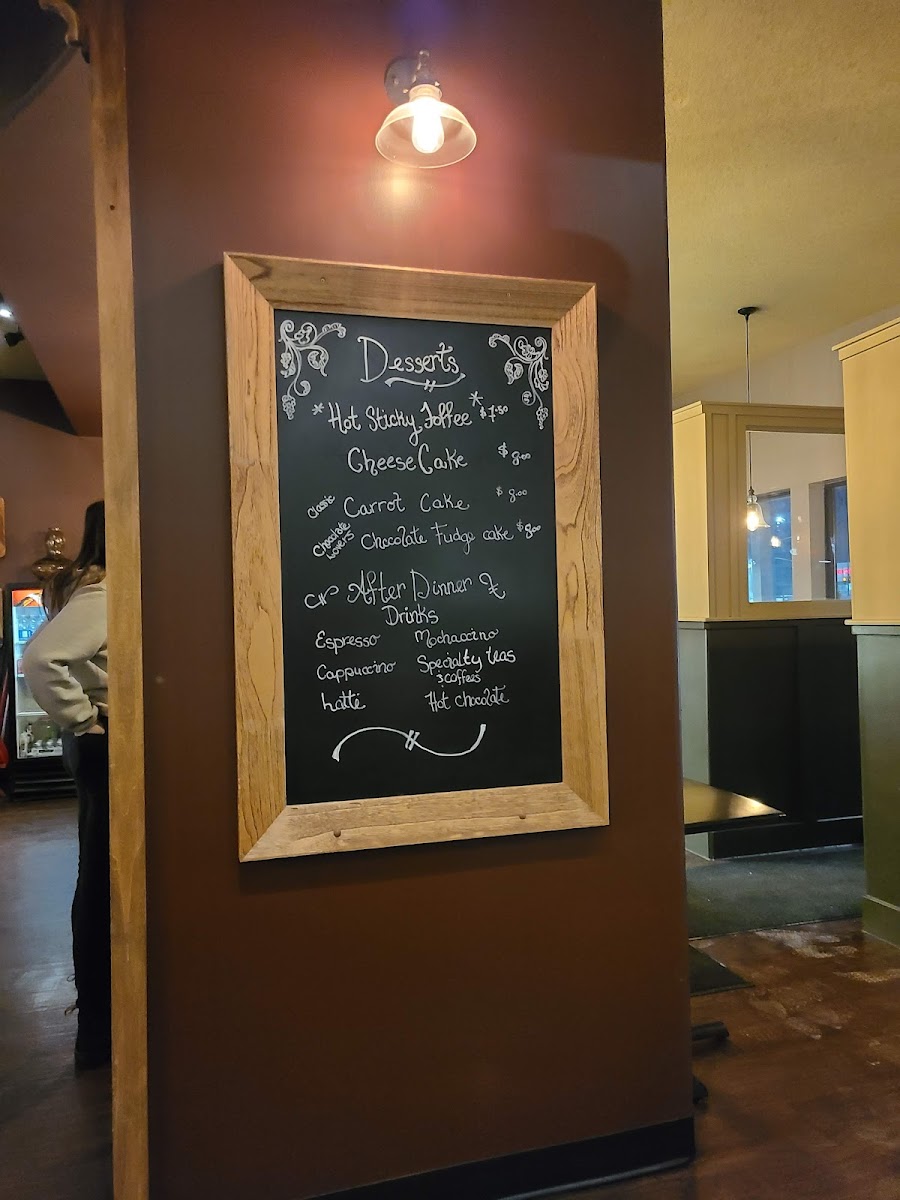 Desserts
*Hot Sticky Toffee* $7.50
CheeseCake $8.00
Classic Carrot Cake $8.00
Chocolate Lovers Chocolate Fudge cake $8.00
After Dinner
Drinks
Espresso Mochaccino
Cappuccino Specialty teas
& coffees
Latté Hot chocolate